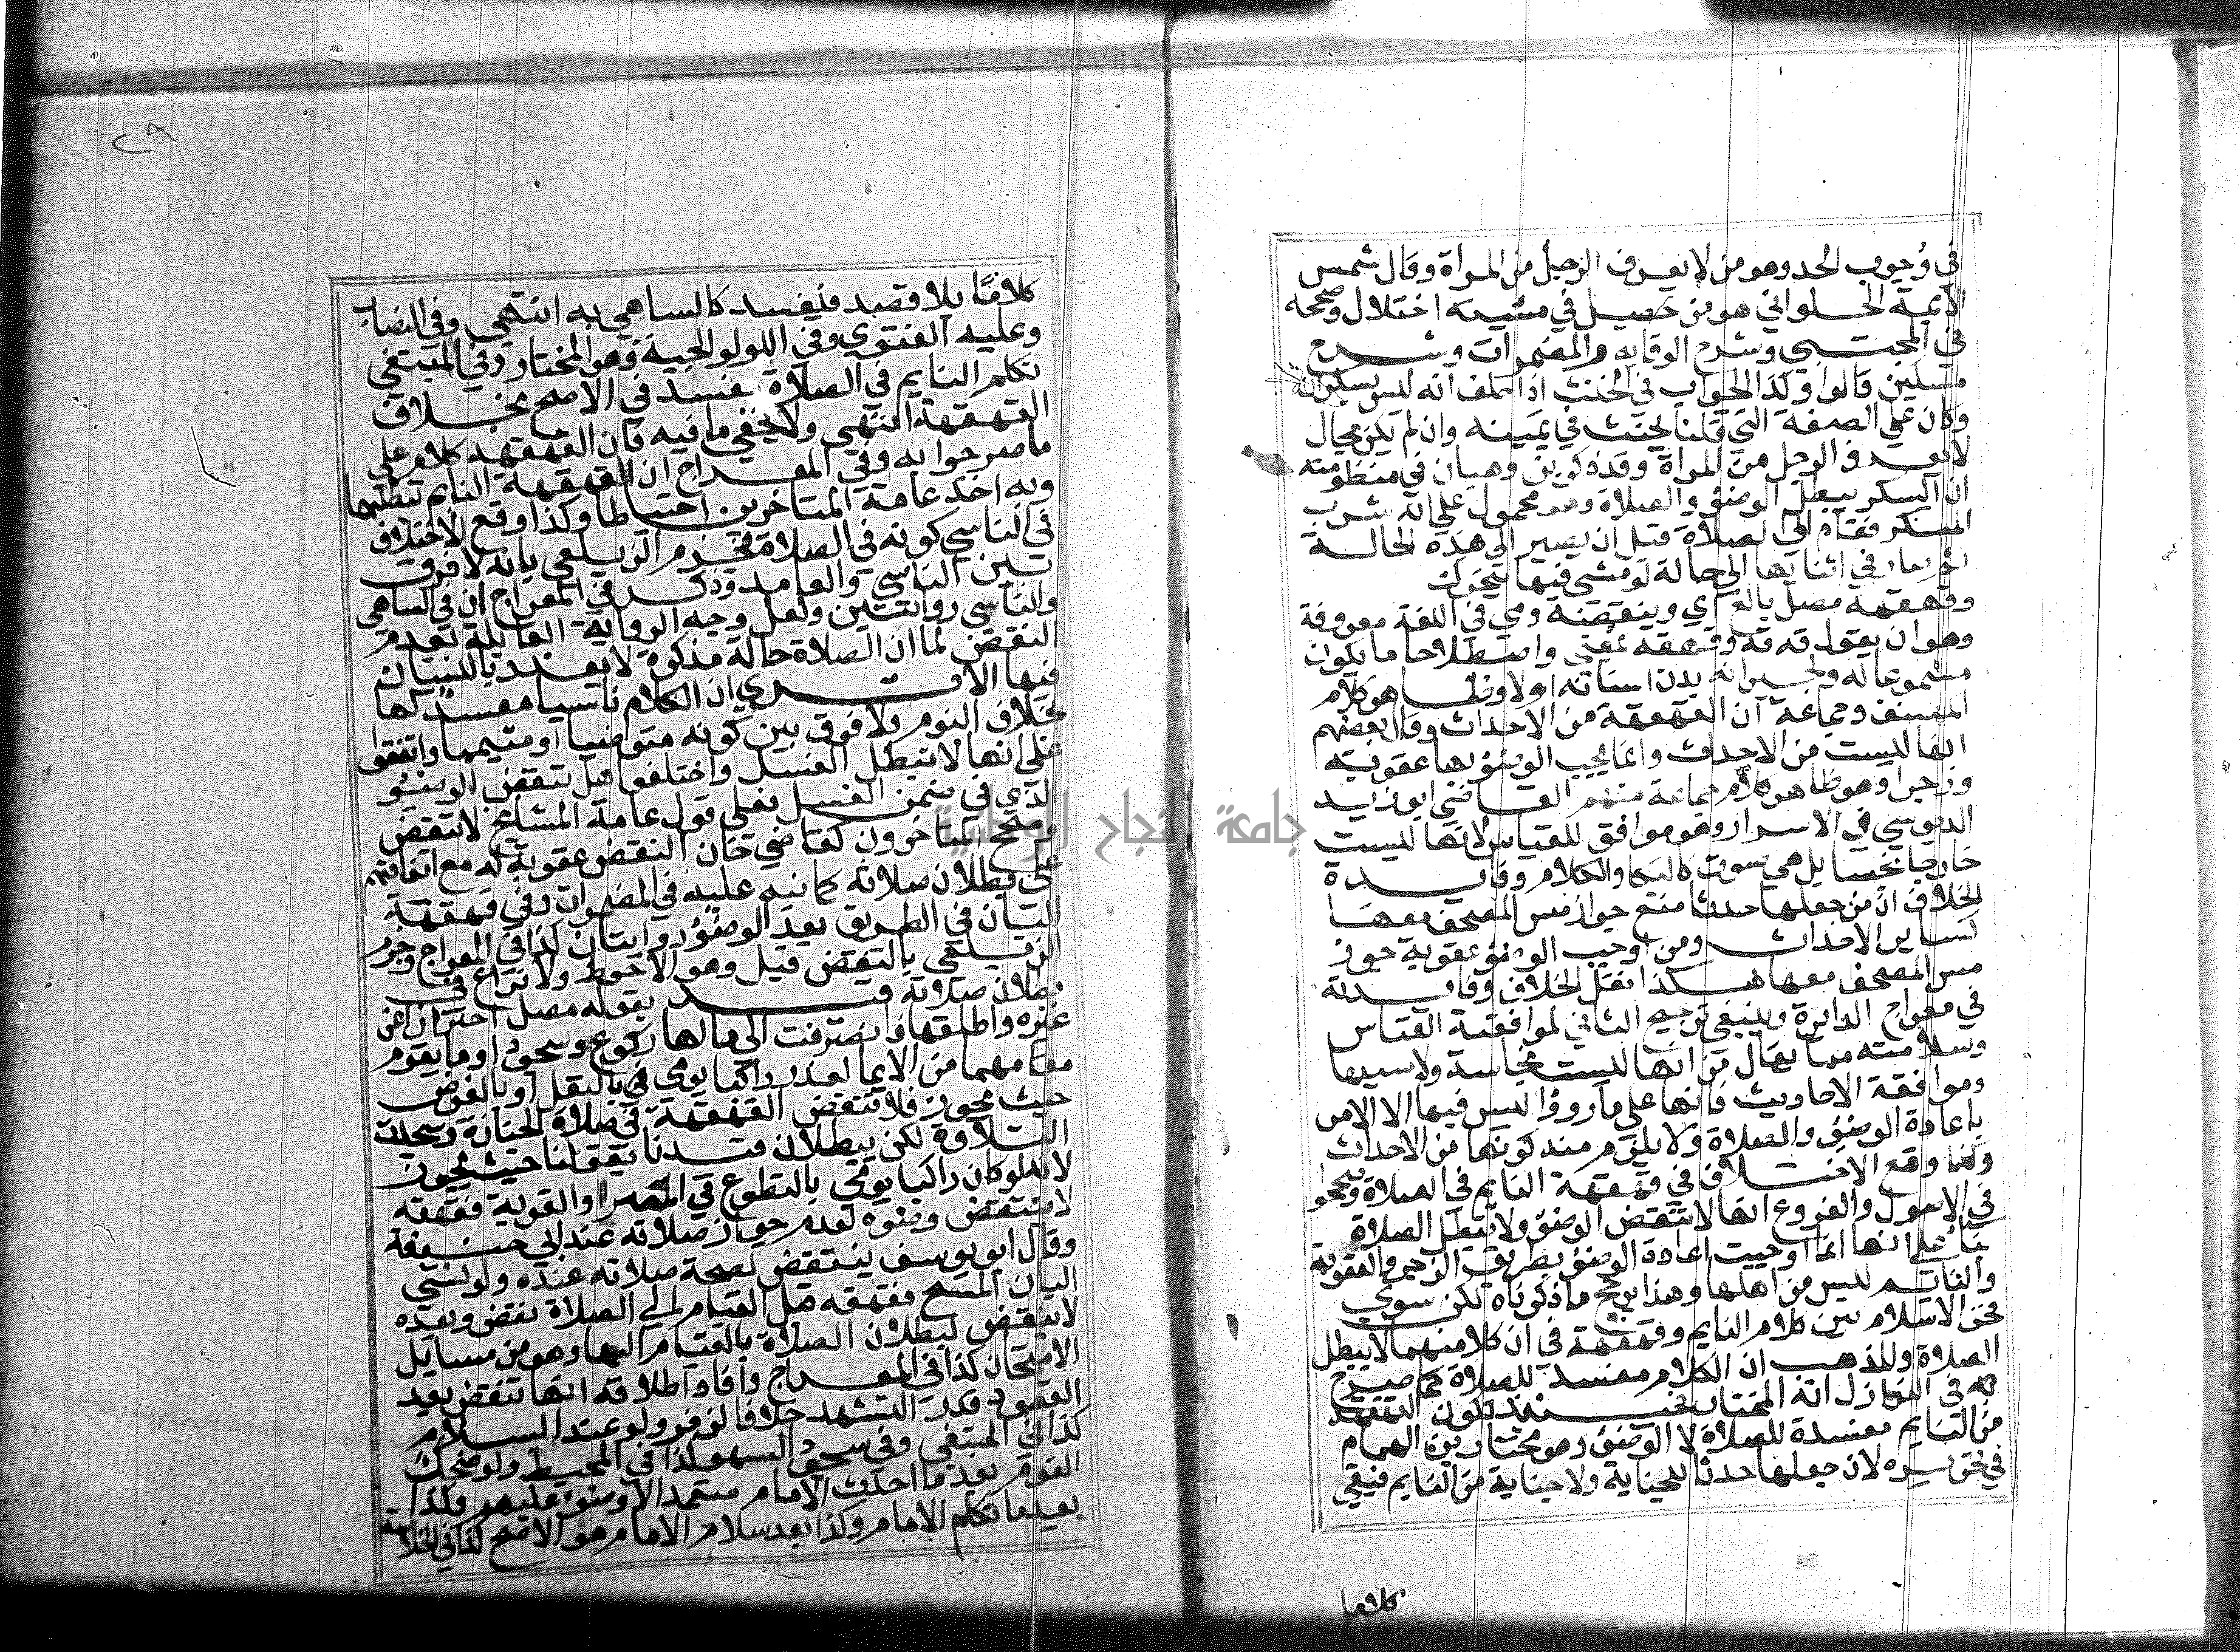 في وجوب الحد وهو من لا يعرف الرجل من المراة وقال شمس
الايمة الحلواني هو من حصل في مشيته اختلال وصححه
في المجتبي وشرح الوقاية والمضمرات وشرح
مسكين قالوا وكذا الجواب في الحنث اذا حلف انه ليس بسكران
وكان علي الصفة التي قلنا يحنث في يمينه وان لم يكن بحال
لا يعرف الرجل من المراة وقد ذكر بن وهبان في منظومته
ان السكر يبطل الوضؤ والصلاة وهو محمول علي انه شرب
المسكر فقام الي الصلاة قبل ان يصير الي هذه الحالة
ثم صار في اثنايها الي حالة لو مشي فيها يتحرك
وقهقهة مصل بالغ اي وينقضه وهي في اللغة معروفة
وهو ان يقول قه قه وقهقه بمعني واصطلاحا ما يكون
مسموعا له ولجيرانه بدت اسنانه او لا وظاهر كلام
المصنف وجماعة ان القهقهة من الاحداث وقال بعضهم
انها ليست من الاحداث وانما يجب الوضؤ بها عقوبة
وزجرا وهو ظاهر كلام جماعة منهم القاضي ابو زيد
الدبوسي في الاسرار وهو موافق للقياس لانها ليست
خارجا نجسا بل هي صوت كالبكا والكلام وفايدة
الخلاف ان من جعلها حدثا منع جواز مس المصحف معها
كساير الاحداث ومن اوجب الوضؤ عقوبة جوز
مس المصحف معها هكذا نقل الخلاف وفايدته
في معراج الدارية وينبغي ترجيح الثاني لموافقة القياس
وسلامته مما يقال من انها ليست نجاسة ولا سببها
وموافقة الاحاديث فانها علي ما رووا ليس فيها الا الامر
باعادة الوضؤ والصلاة ولا يلزم منه كونها من الاحداث
ولهذا وقع الاختلاف في قهقهة النايم في الصلاة وصححوا
في الاصول والفروع انها لا تنقض الوضؤ ولا تبطل الصلاة
بنا علي انها انما اوجبت اعادة الوضؤ بطريق الزجر والعقوبة
والنايم ليس من اهلها وهذا يرجح ما ذكرناه لكن سوي
فخر الاسلام بين كلام النايم وقهقهته في ان كلا منهما لا يبطل
الصلاة والمذهب ان الكلام مفسد للصلاة كما صرح
به في النوازل انه المختار فحينئذ تكون القهقهة
من النايم مفسدة للصلاة لا الوضؤ وهو مختار بن الهمام
في تحريره لان جعلها حدثا للجناية ولا جناية من النايم فيبقي
كلاما
٢٩
كلاما بلا قصد فيفسد كالساهي به انتهي وفي النصاب
وعليه الفتوي وفي اللولوالجية وهو المختار وفي المبتغي
تكلم النايم في الصلاة مفسد في الاصح بخلاف
القهقهة انتهي ولا يخفي ما فيه فان القهقهة كلام علي
ما صرحوا به وفي المعراج ان قهقهة النايم تبطلهما
وبه اخذ عامة المتاخرين احتياطا وكذا وقع الاختلاف
في الناسي كونه في الصلاة فجزم الزيلعي بانه لا فرق
بين الناسي والعامد وذكر في المعراج ان في الساهي
والناسي روايتين ولعل وجه الرواية القايلة بعدم
النقض لما ان الصلاة حالة مذكرة لا يعذر بالنسيان
فيها الا تري ان الكلام ناسيا مفسد لها
بخلاف النوم ولا فرق بين كونه متوضيا او متيمما واتفقوا
علي انها لا تبطل الغسل واختلفوا هل تنقض الوضؤ
الذي في ضمن الغسل فعلي قول عامة المشايخ لا تنقض
وصحح المتاخرون كقاضي خان النقض عقوبة له مع اتفاقهم
علي بطلان صلاته كما نبه عليه في المضمرات وفي قهقهة
الباني في الطريق بعد الوضؤ روايتان كذا في المعراج وجزم
الزيلعي بالنقض قيل وهو الاحوط ولا نزاع في
بطلان صلاته قيد بقوله مصل احترازا عن
غيره واطلقها فانصرفت الي مالها ركوع وسجود او ما يقوم
مقامهما من الايما لعذر راكبا يومي بالنفل او بالفرض
حيث يجوز فلا تنقض القهقهة في صلاة الجنازة وسجدة
التلاوة لكن يبطلان قيدنا بقولنا حيث يجوز
لانه لو كان راكبا يومي بالتطوع في المصر او القرية فقهقه
لا ينتقض وضوه لعدم جواز صلاته عند ابي حنيفة
وقال ابو يوسف ينتقض لصحة صلاته عنده ولو نسي
الباني المسح فقهقه قبل القيام الي الصلاة نقض وبعده
لا ينقض لبطلان الصلاة بالقيام اليها وهو من مسايل
الامتحان كذا في المعراج وافاد اطلاقه انها تنقض بعد
القعود قدر التشهد خلافا لزفر ولو عند السلام
كذا في المبتغي وفي سجود السهو كذا في المحيط ولو ضحك
القوم بعد ما احدث الامام متعمدا لا وضؤ عليهم وكذا
بعد ما تكلم الامام وكذا بعد سلام الامام هو الاصح كذا في الخلاصة
جامعة النجاح الوطنية